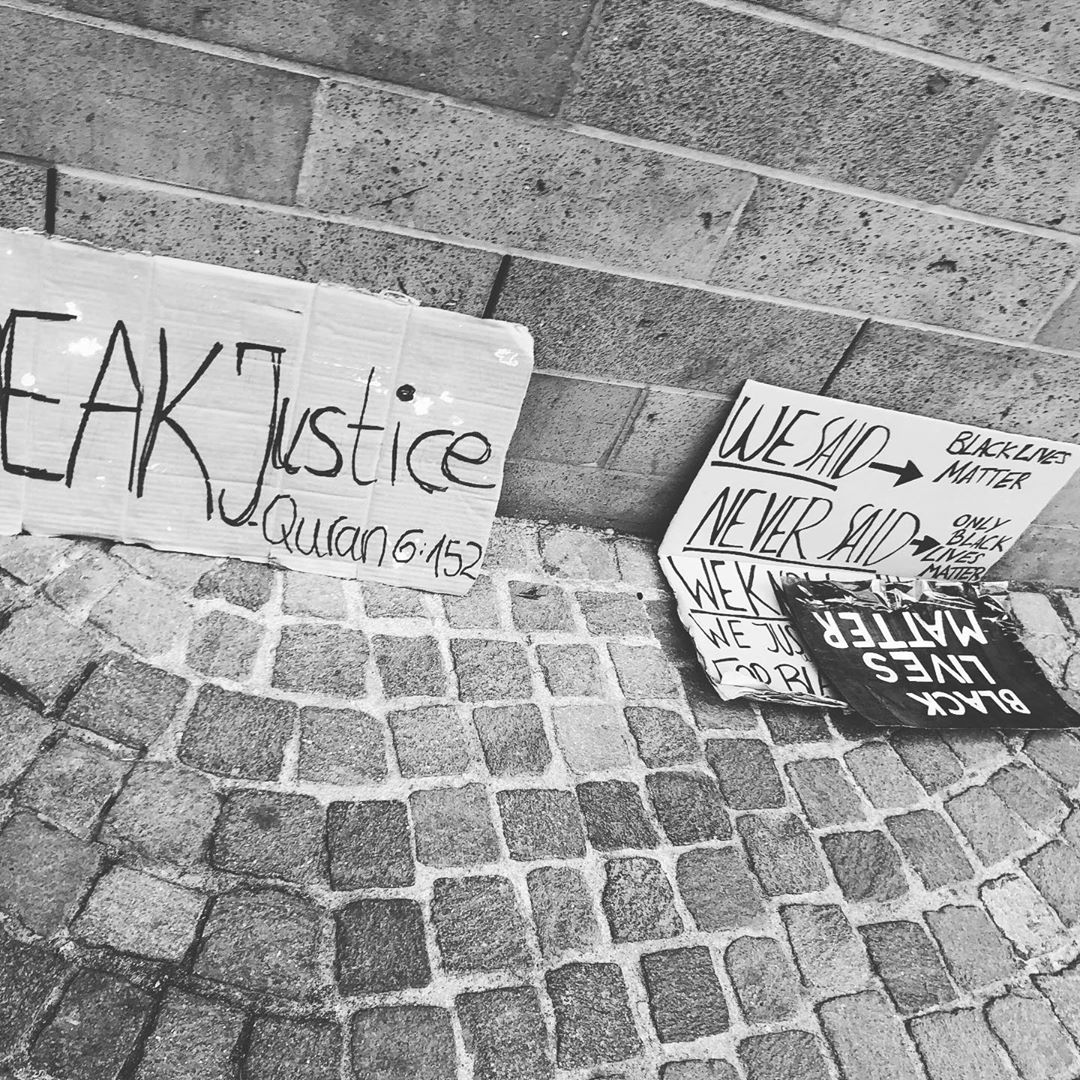 EAK Justice
- Quran 6:152
WE SAID → BLACK LIVES MATTER
NEVER SAID → ONLY BLACK LIVES MATTER
WE
WE JUS
BLACK
LIVES
MATTER